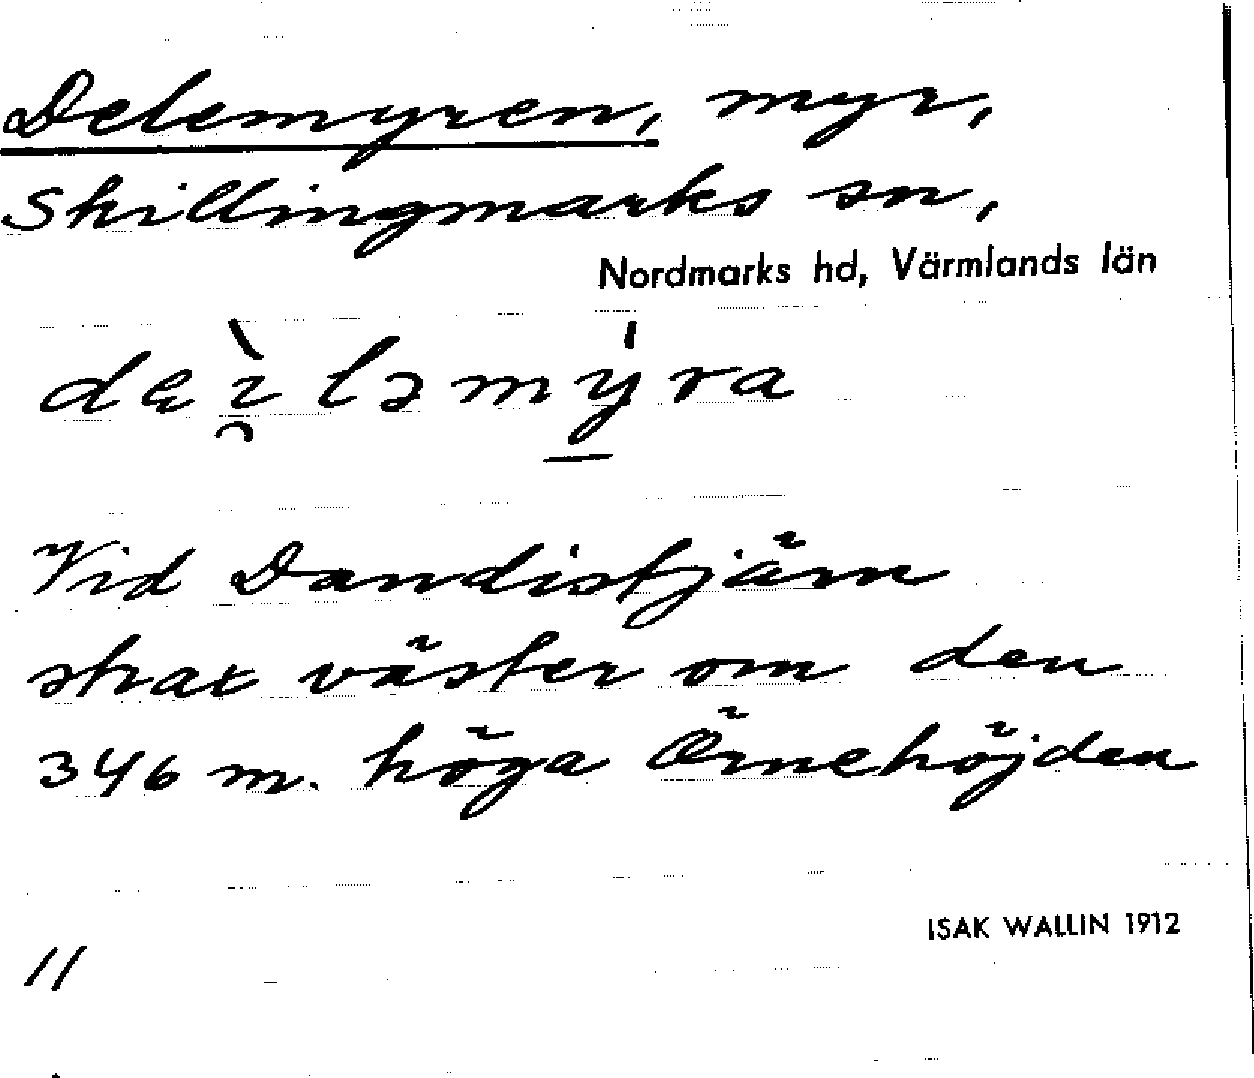 Delemyren, myr,
Skillingmarks sn,
Nordmarks hd, Värmlands län
dɛı̯̀ləmýra
Vid Dandistjärn
strax väster om den
346 m. höga Örnehöjden
ISAK WALLIN 1912
11